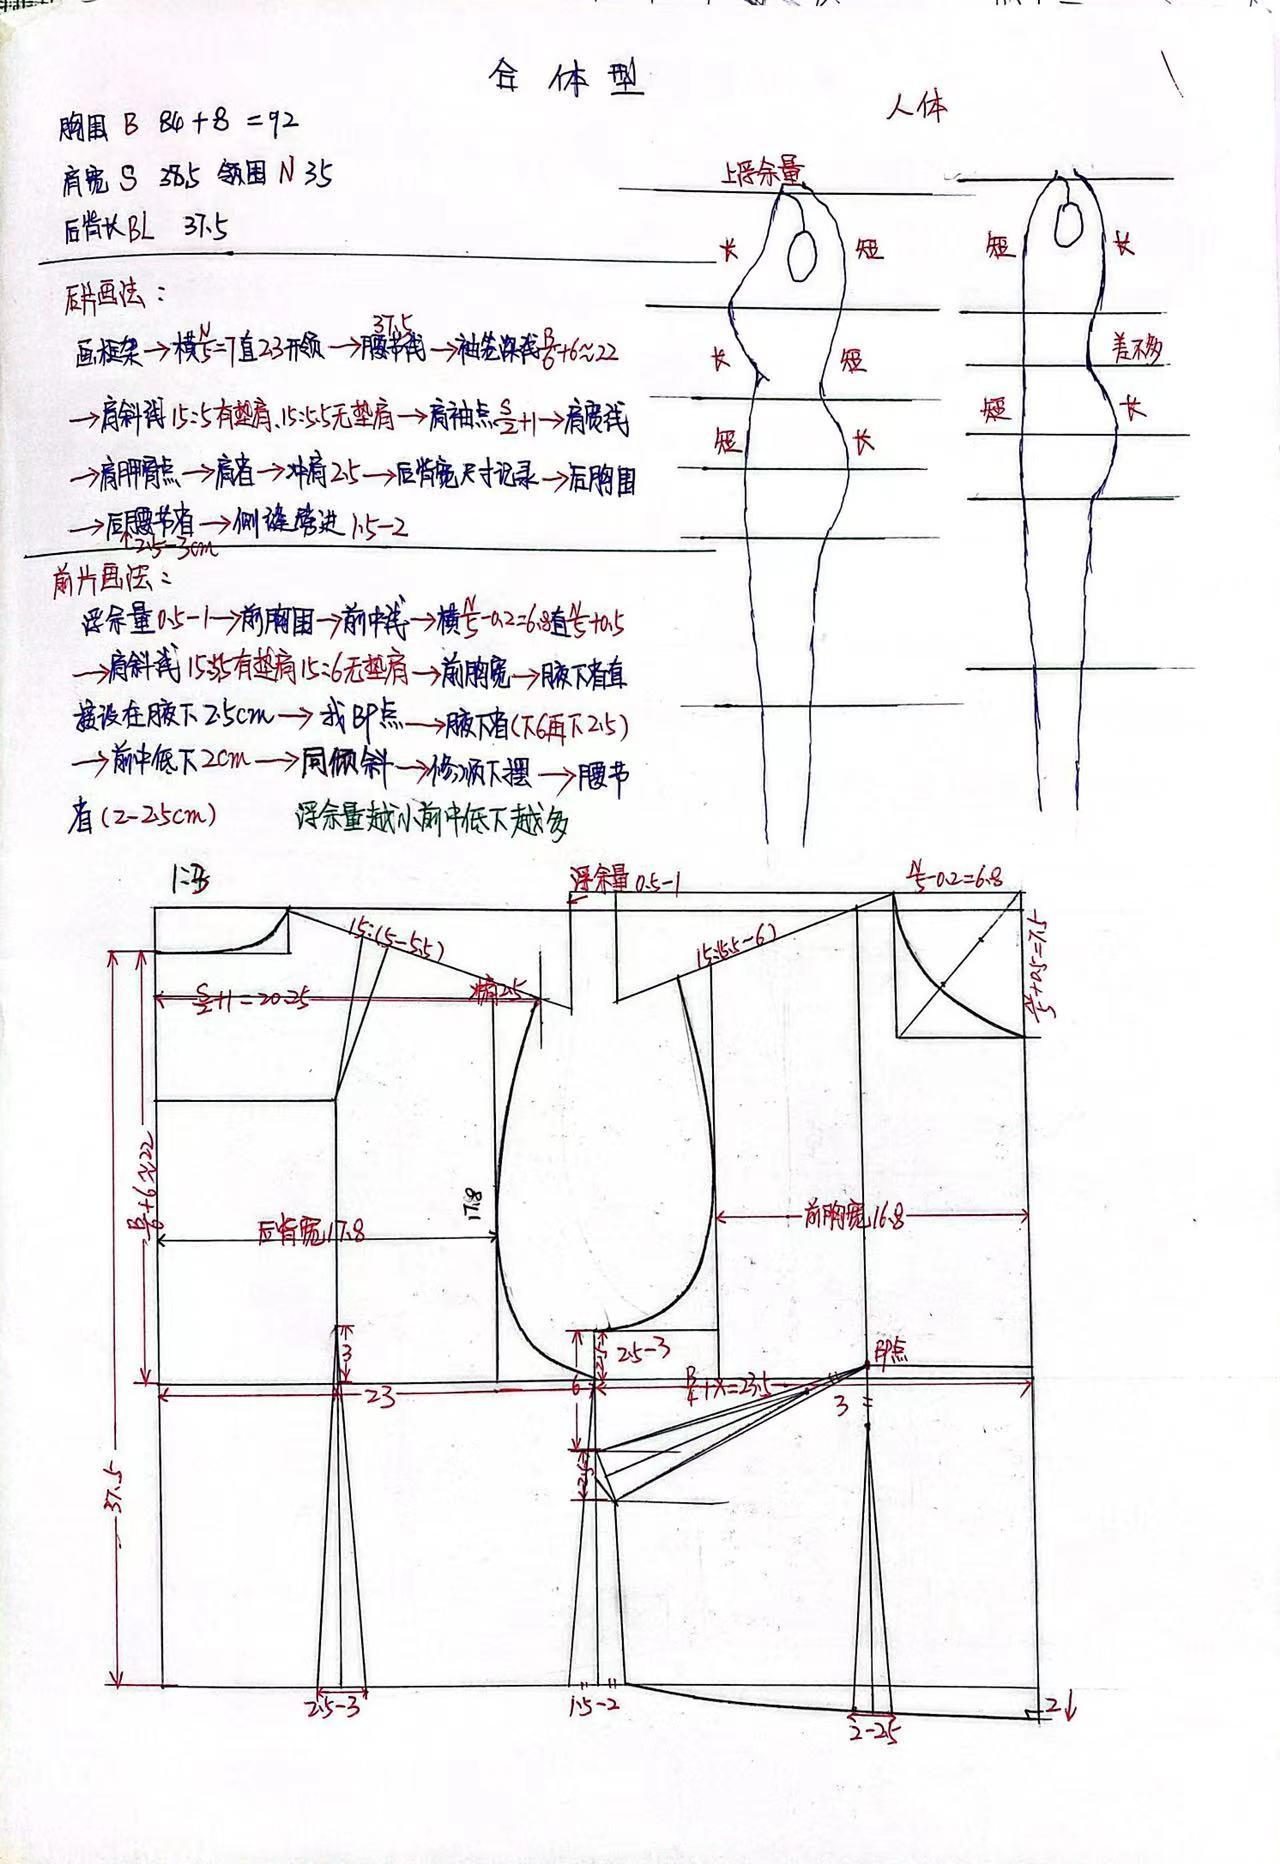 合体型
胸围 B 84+8=92
肩宽 S 38.5 领围 N 35
后背长 BL 37.5
后片画法：
画框架→横N/5=7直2.3开领→腰节线37.5→袖笼深线B/6+6≈22
→肩斜线15:5有垫肩、15:5.5无垫肩→肩袖点S/2+1→肩宽线
→肩胛骨点→肩省→冲肩2.5→后背宽尺寸记录→后胸围
→后腰节省→侧缝劈进1.5-2
↑2.5-3cm
前片画法：
浮余量0.5-1→前胸围→前中线→横N/5-0.2=6.8直N/5+0.5
→肩斜线15:5.5有垫肩15:6无垫肩→前胸宽→腋下省直
接设在腋下2.5cm→找BP点→腋下省(下6再下2.5)
→前中低下2cm→同倾斜→修顺下摆→腰节
省(2-2.5cm)
浮余量越小前中低下越多
人体
上浮余量
长 短
长 短
短 长
短 长
差不多
短 长
1:5
浮余量0.5-1
N/5-0.2=6.8
15:(5-5.5)
15:(5.5-6)
N/5+0.5=7.5
S/2+1=20.25
冲肩2.5
B/6+6≈22
后背宽17.8
17.8
前胸宽16.8
3
2.5
2.5-3
BP点
23
6
B/4+x=23.5
3
2.5
37.5
2.5-3
1.5-2
2-2.5
2↓